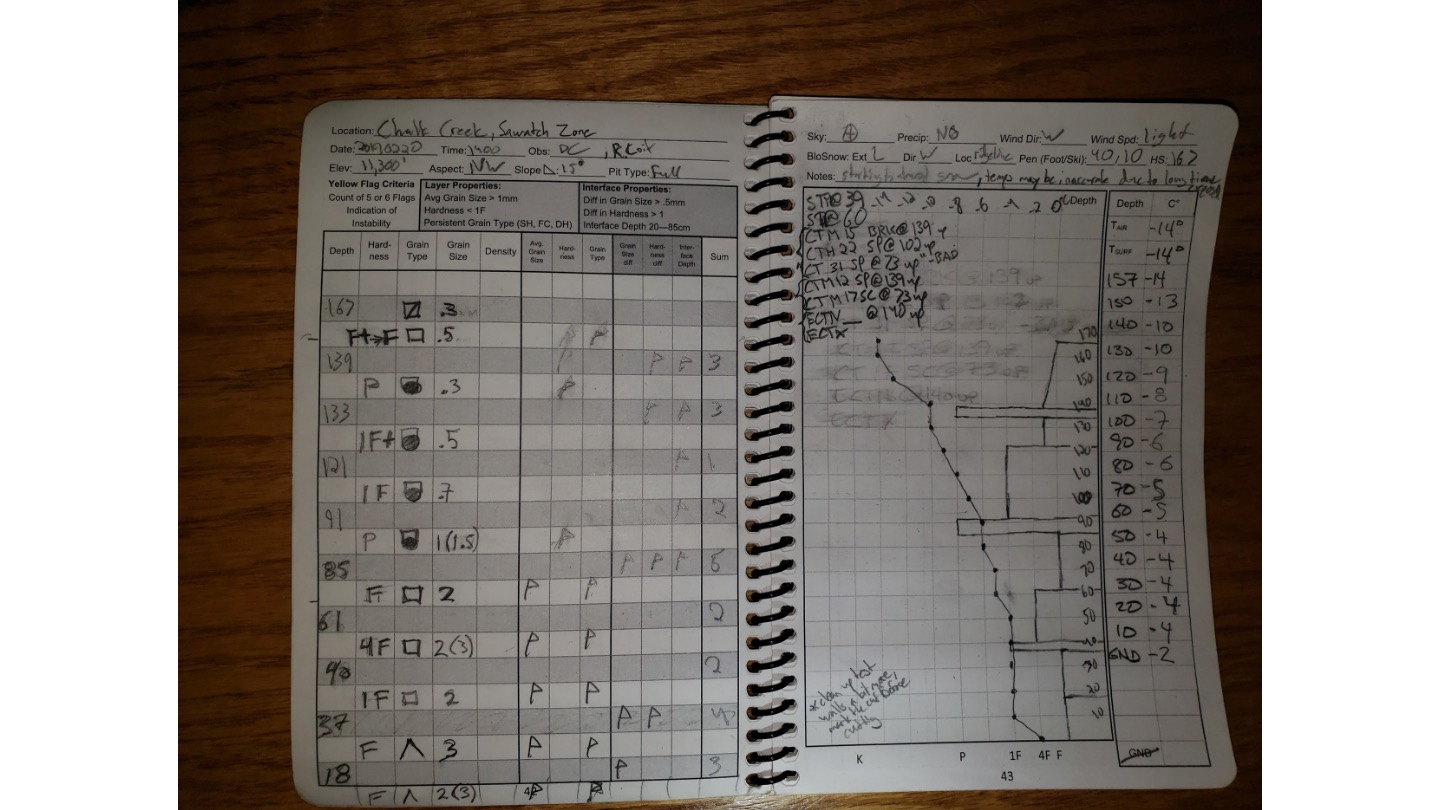 Location: Chalk Creek, Sawatch Zone
Date: 20190220 Time: 1400 Obs: DC, R.Coit
Elev: 11,300' Aspect: NW Slope: 15° Pit Type: Full
Yellow Flag Criteria
Count of 5 or 6 Flags
Indication of
Instability
Layer Properties:
Avg Grain Size > 1mm
Hardness < 1F
Persistent Grain Type (SH, FC, DH)
Interface Properties:
Diff in Grain Size > .5mm
Diff in Hardness > 1
Interface Depth 20—85cm
Depth Hard-ness Grain Type Grain Size Density Avg. Grain Size Hard-ness Grain Type Grain Size diff Hard-ness diff Inter-face Depth Sum
167 .3
F+→F .5 P P
139 P P 3
P .3 P
133 P P 3
1F+ .5
121 P 1
1F .7
91 P 2
P 1(1.5) P
85 P P P 5
F 2 P P
61 2
4F 2(3) P P
40 2
1F 2 P P
37 P P 4
F Λ 3 P P
18 P 3
F Λ 2(3) P P
Sky: Precip: NO Wind Dir: W Wind Spd: Light
BloSnow: Ext L Dir W Loc ridgeline Pen (Foot/Ski): 40, 10 HS: 167
Notes: snow, temps may be inaccurate due to long time
ST @ 39
ST @ 60
CTM 15 BRK @ 139 up
CTH 22 SP @ 102 up
CT 31 SP @ 73 up -BAD
CTM 12 SP @ 139 up
CTM 17 SC @ 73 up
ECTN @ 140 up
ECTX
8 6 4 2 0 °C Depth
170
160
150
140
130
120
110
100
90
80
70
60
50
40
30
20
10
* clean up test
walls a bit more
cutting
K P 1F 4F F
43
Depth C°
TAIR -14°
TSURF -14°
157 -14
150 -13
140 -10
130 -10
120 -9
110 -8
100 -7
90 -6
80 -6
70 -5
60 -5
50 -4
40 -4
30 -4
20 -4
10 -4
GND -2
GND